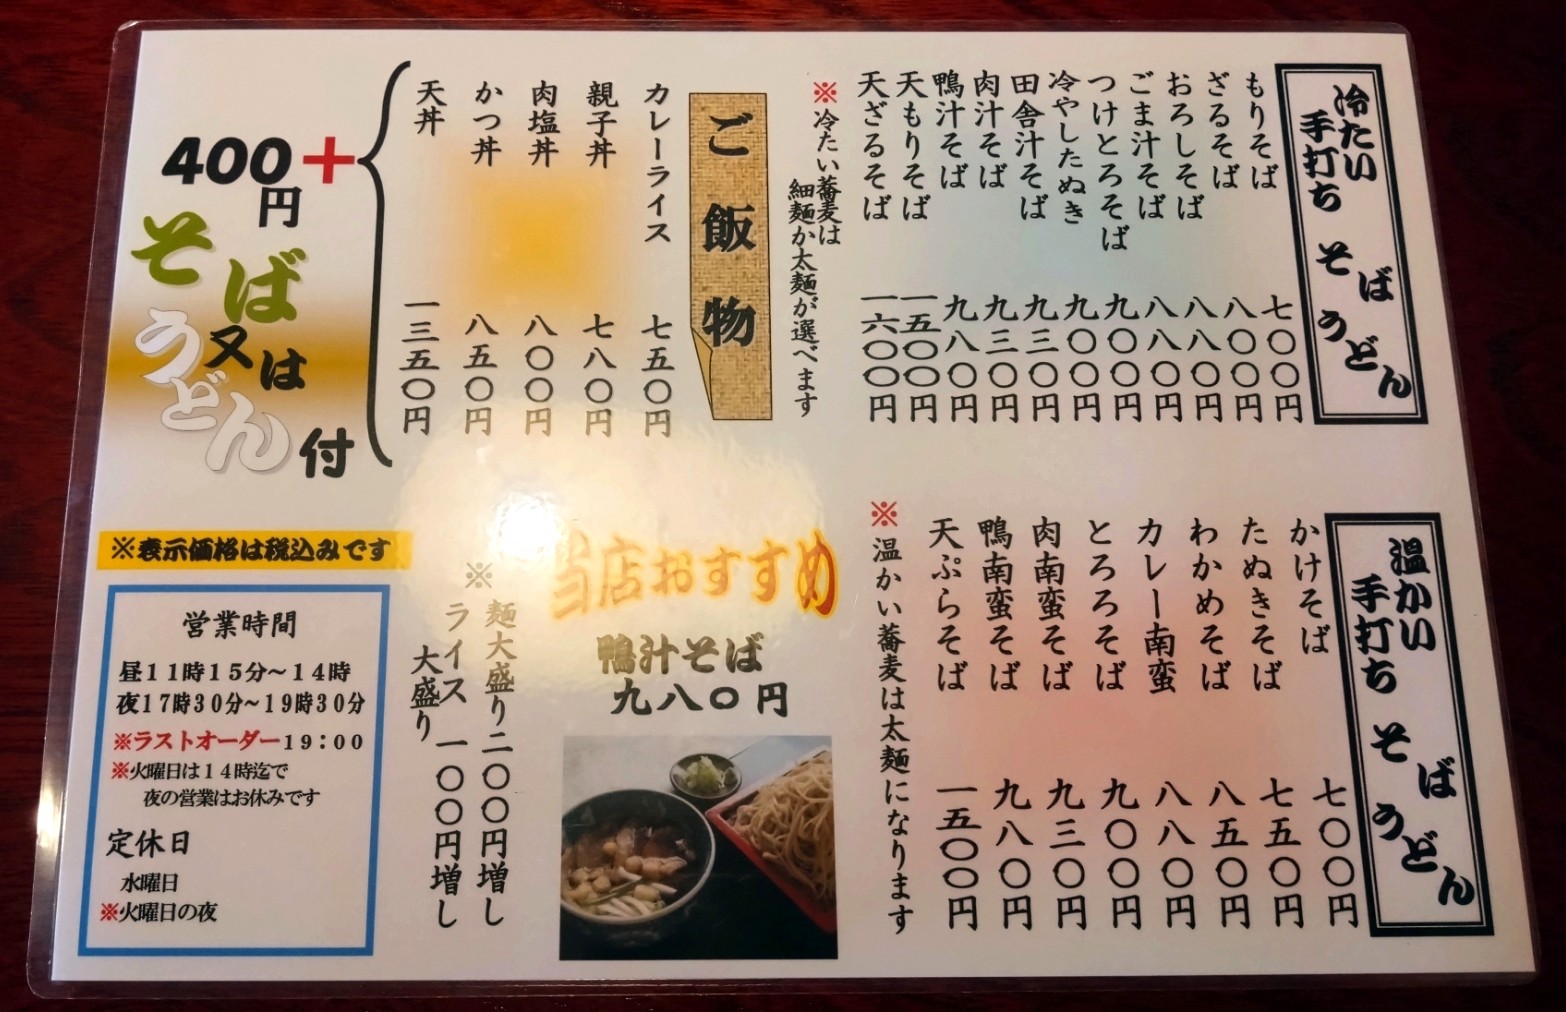 冷たい
手打ち そば うどん
もりそば 七〇〇円
ざるそば 八〇〇円
おろしそば 八八〇円
ごま汁そば 八八〇円
つけとろそば 九〇〇円
冷やしたぬき 九〇〇円
田舎汁そば 九三〇円
肉汁そば 九三〇円
鴨汁そば 九八〇円
天もりそば 一五〇〇円
天ざるそば 一六〇〇円
※冷たい蕎麦は
細麺か太麺が選べます
ご飯物
カレーライス 七五〇円
親子丼 七八〇円
肉塩丼 八〇〇円
かつ丼 八五〇円
天丼 一三五〇円
400円+
そば
又は
うどん
付
温かい
手打ち そば うどん
かけそば 七〇〇円
たぬきそば 七五〇円
わかめそば 八五〇円
カレー南蛮 八八〇円
とろろそば 九〇〇円
肉南蛮そば 九三〇円
鴨南蛮そば 九八〇円
天ぷらそば 一五〇〇円
※温かい蕎麦は太麺になります
当店おすすめ
鴨汁そば
九八〇円
※麺大盛り二〇〇円増し
ライス大盛り 一〇〇円増し
※表示価格は税込みです
営業時間
昼11時15分～14時
夜17時30分～19時30分
※ラストオーダー19:00
※火曜日は14時迄で
夜の営業はお休みです
定休日
水曜日
※火曜日の夜